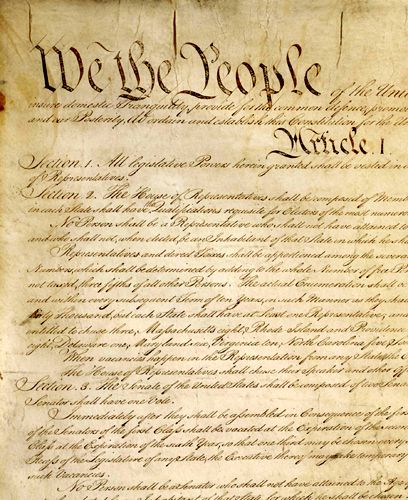 We the People of the Unit
insure domestic Tranquility, provide for the common defence, promo
and our Posterity, do ordain and establish this Constitution for the Un
Article. I.
Section. 1. All legislative Powers herein granted shall be vested in
of Representatives.
Section. 2. The House of Representatives shall be composed of Memb
in each State shall have Qualifications requisite for Electors of the most numero
No Person shall be a Representative who shall not have attained to
and who shall not, when elected, be an Inhabitant of that State in which he sha
Representatives and direct Taxes shall be apportioned among the severa
Numbers, which shall be determined by adding to the whole Number of free P
not taxed, three fifths of all other Persons. The actual Enumeration shall
and within every subsequent Term of ten Years, in such Manner as they sha
thirty Thousand, but each State shall have at Least one Representative; and
entitled to chuse three, Massachusetts eight, Rhode Island and Providence
eight, Delaware one, Maryland six, Virginia ten, North Carolina five, Sou
When vacancies happen in the Representation from any State, the
The House of Representatives shall chuse their Speaker and other Of
Section. 3. The Senate of the United States shall be composed of two Sena
Senator shall have one Vote.
Immediately after they shall be assembled in Consequence of the firs
of the Senators of the first Class shall be vacated at the Expiration of the
Class at the Expiration of the sixth Year, so that one third may be chosen every
Recess of the Legislature of any State, the Executive thereof may make tempora
such Vacancies.
No Person shall be a Senator who shall not have attained to the Age